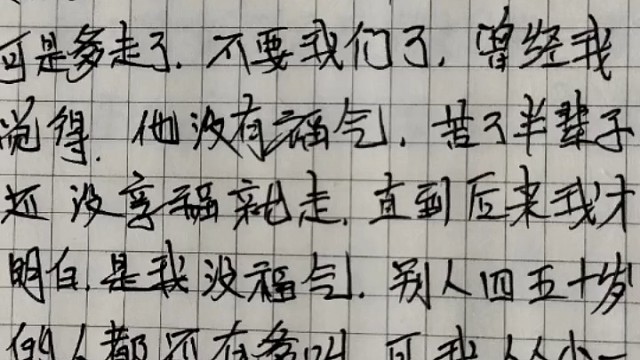 可是爹走了.不要我们了,曾经我
觉得.他没有福气.苦了半辈子
还没享福就走.直到后来我才
明白.是我没福气.别人四五十岁
的人都还有爹叫 可我从小